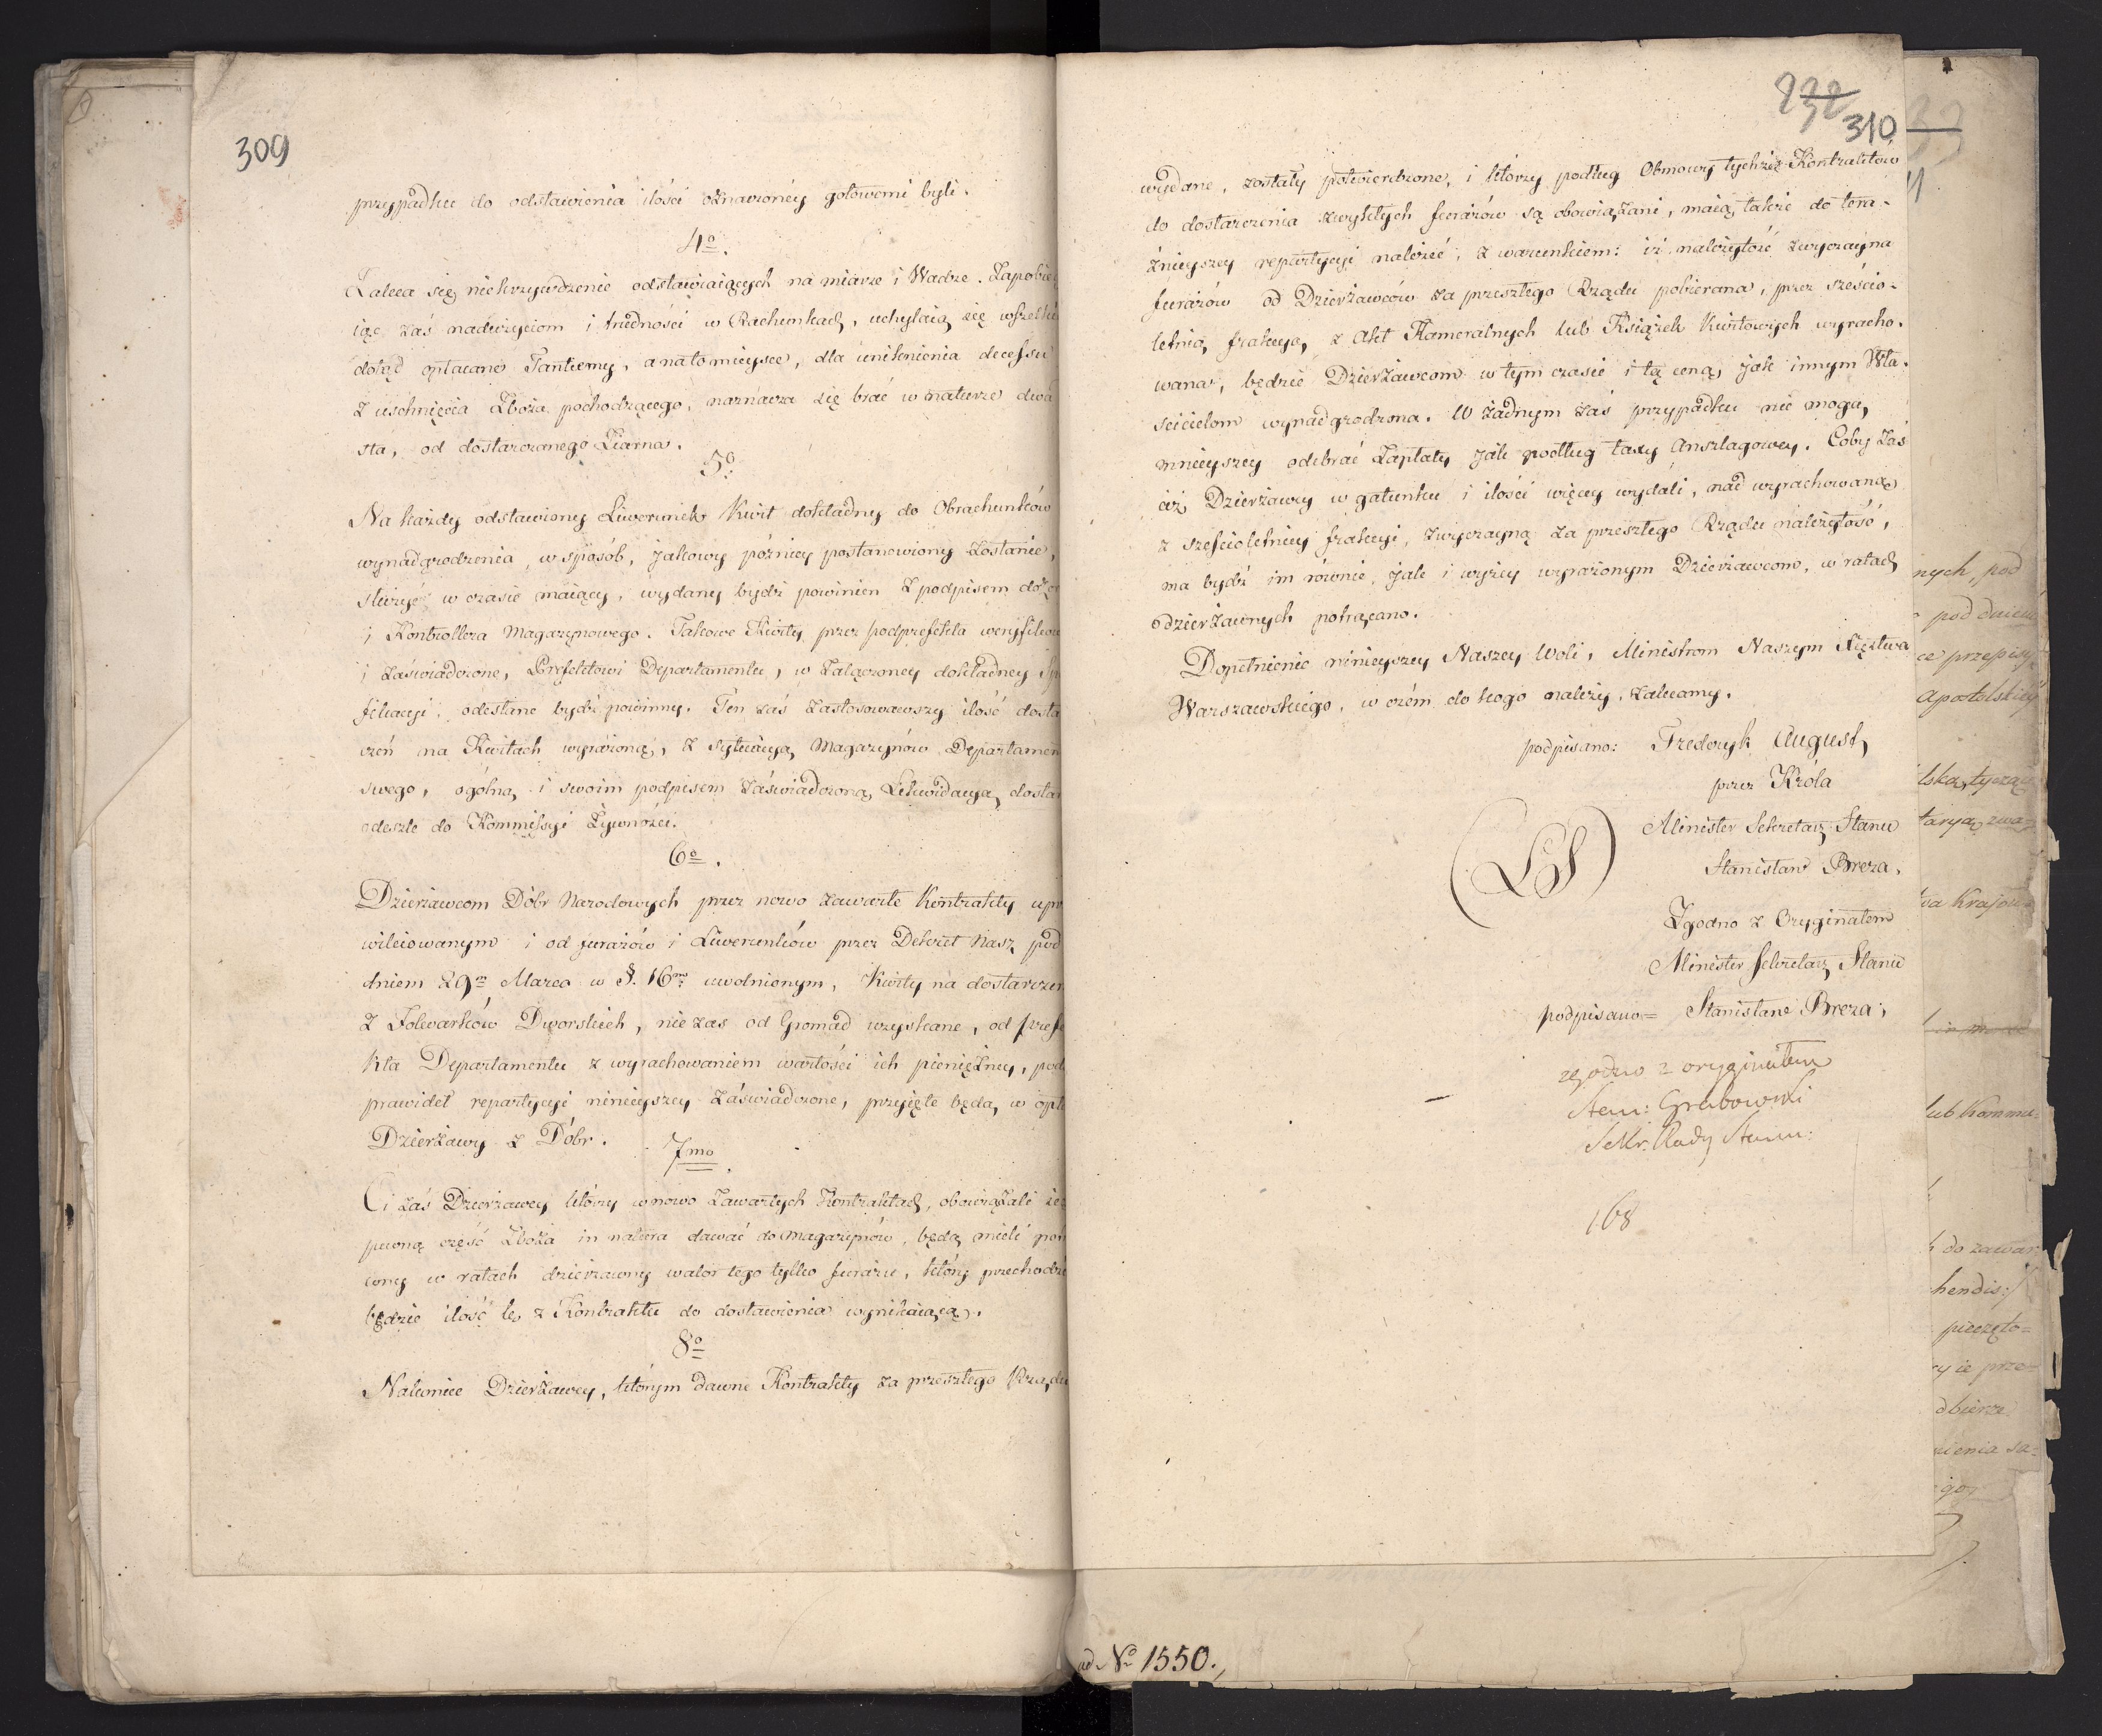 309
przypadku do odstawienia ilości oznaczonéy gotowemi byli.
4o.
Zaleca się niekrzywdzenie odstawiaiących na miarze i Wadze. Zapobie
iąc zaś nadużyciom i trudności w Rachunkach, uchylaią się wszelkie
dotąd opłacane Tantiemy, a na to mieysce, dla uniknienia decessu
z uschnięcia Zboża pochodzącego, naznacza się brać w naturze dwa
sta, od dostarczanego Ziarna.
5o.
Na każdy odstawiony Liwerunek Kwit dokładny do Obrachunków
wynadgrodzenia, w sposób, jakowy późniey postanowiony zostanie,
służyć w czasie maiący, wydany bydź powinien z podpisem
i Kontrollera Magazynowego. Takowe Kwity przez podprefekta weryfiko
i zaświadczone, Prefektowi Departamentu, w załączoney dokładney Sp
fikacyi, odesłane bydź powinny. Ten zaś zastosowawszy ilość dosta
czeń na Kwitach wyrażoną, z sytuacyą Magazynów Departamen
swego, ogólną i swoim podpisem zaświadczoną Likwidacyą dosta
odeszle do Kommissyi Żywności.
6o.
Dzierżawcom Dóbr Narodowych przez nowo zawarte Kontrakty upr
wileiowanym i od furażów i Liwerunków przez Dekret Nasz pod
dniem 29m Marca w §. 16mo uwolnionym, Kwity na dostarcze
z Folwarków Dworskich, nie zas od Gromad uzyskane, od prefe
kta Departamentu z wyrachowaniem wartości ich pieniężney, pod
prawideł repartycyi ninieyszey zaświadczone, przyięte będą w opła
Dzierżawy z Dóbr.
7mo.
Ci zaś Dzierżawcy którzy w nowo zawartych Kontraktach, obowiązali się
pewną część Zboża in natura dawać do Magazynów, będą mieli potr
cony w ratach dzierżawny walor tego tylko furażu, który przechodzi
będzie ilość tę z Kontraktu do dostawienia wynikaiącą.
8o
Nakoniec Dzierżawcy, którym dawne Kontrakty za przeszłego Rządu
232
310
wydane, zostały potwierdzone, i którzy podług Obmowy tychże Kontraktów
do dostarczenia zwykłych furażów są obowiązani, maią także do tera-
źnieyszey repartycyi należeć, z warunkiem: iż należytość zwyczayna
furażów od Dzierżawców za przeszłego Rządu pobierana, przez sześcio-
letnią frakcyą z Akt Kameralnych lub Książek Kwitowych wyracho-
wana, będzie Dzierżawcom w tym czasie i tą ceną, jak innym Wła-
ścicielom wynadgrodzona. W żadnym zaś przypadku nie mogą
mnieyszey odebrać Zapłaty jak podług taxy Anszlagowey. Coby zaś
ciż Dzierżawcy w gatunku i ilości więcey wydali, nad wyrachowaną
z sześcioletniey frakcyi, zwyczayną za przeszłego Rządu należytość,
ma bydź im równie, jak i wyżey wyrażonym Dzierżawcom, w ratach
dzierżawnych potrącano.
Dopełnienie ninieyszey Naszey Woli, Ministrom Naszym Xięstwa
Warszawskiego, w czém do kogo należy, zalecamy.
podpisano: Fryderyk August,
przez Króla
Minister Sekretarz Stanu
(LS)
Stanisław Breza,
Zgodno z Oryginałem
Minister Sekretarz Stanu
podpisano= Stanisław Breza;
zgodno z oryginałem
Stan: Grabowski
Sekr. Rady Stanu:
168
ad No 1550.
nych, pod
pod dniem
ce przepisy
apostolskiey
lska, tycząc
taryą, zwa=
wa Krajow
lub Kommu=
do zawar
hendis:/
pieczęto=
ry ie prze=
dbierze
ienia sa=
go